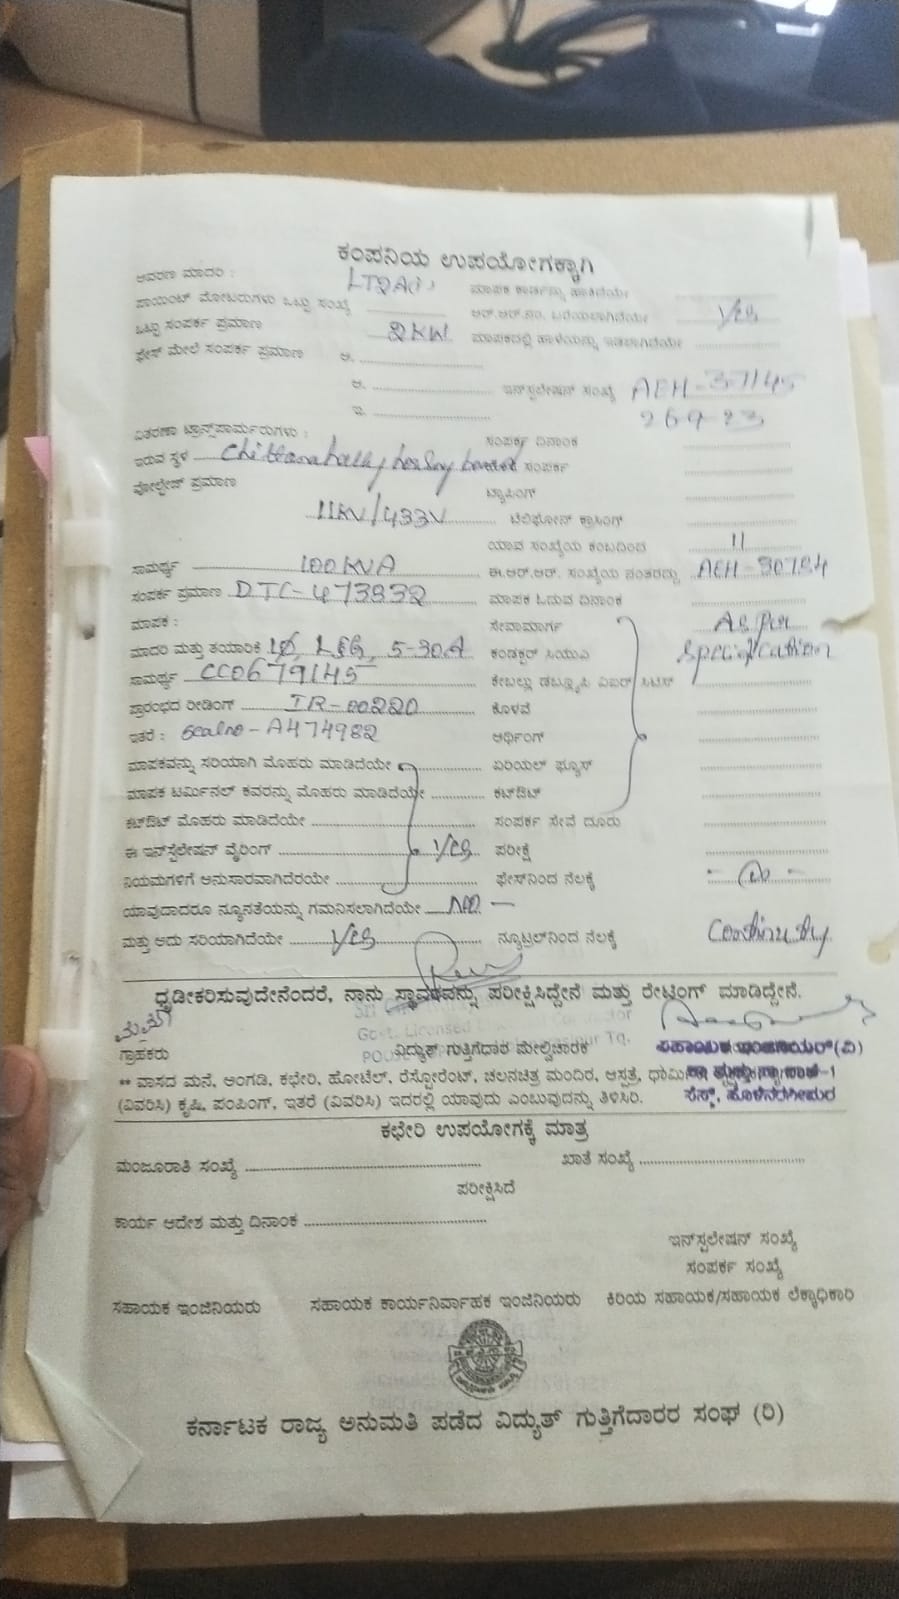 ಕಂಪನಿಯ ಉಪಯೋಗಕ್ಕಾಗಿ
ಆವರಣ ಮಾದರಿ : LT2A(i) ಮಾಪಕ ಕಾರ್ಡನ್ನು ಹಾಕಿದೆಯೇ
ಪಾಯಿಂಟ್ ಮೋಟರುಗಳು ಒಟ್ಟು ಸಂಖ್ಯೆ ಆರ್.ಆರ್.ನಂ. ಬರೆಯಲಾಗಿದೆಯೇ Yes
ಒಟ್ಟು ಸಂಪರ್ಕ ಪ್ರಮಾಣ 2KW ಮಾಪಕದಲ್ಲಿ ಹಾಳೆಯನ್ನು ಇಡಲಾಗಿದೆಯೇ
ಫೇಸ್ ಮೇಲೆ ಸಂಪರ್ಕ ಪ್ರಮಾಣ ಅ.
ಆ. ಇನ್‌ಸ್ಟಲೇಷನ್ ಸಂಖ್ಯೆ AEH-37145
ಇ. 26-9-23
ವಿತರಣಾ ಟ್ರಾನ್ಸ್‌ಪಾರ್ಮರುಗಳು : ಸಂಪರ್ಕ ದಿನಾಂಕ
ಇರುವ ಸ್ಥಳ Chittanahally ಸಂಪರ್ಕ
ವೋಲ್ಟೇಜ್ ಪ್ರಮಾಣ ಟ್ಯಾಪಿಂಗ್
11KV/433V ಟೆಲಿಫೋನ್ ಕ್ರಾಸಿಂಗ್
ಯಾವ ಸಂಖ್ಯೆಯ ಕಂಬದಿಂದ 11
ಸಾಮರ್ಥ್ಯ 100KVA ಈ.ಆರ್.ಆರ್. ಸಂಖ್ಯೆಯ ನಂತರದ್ದು AEH-30784
ಸಂಪರ್ಕ ಪ್ರಮಾಣ DTC-473832 ಮಾಪಕ ಓದುವ ದಿನಾಂಕ
ಮಾಪಕ : ಸೇವಾಮಾರ್ಗ As per
ಮಾದರಿ ಮತ್ತು ತಯಾರಿಕೆ 1Ø, L&G, 5-30A ಕಂಡಕ್ಟರ್ ಸಿಯುಎ specification
ಸಾಮರ್ಥ್ಯ CC0679145 ಕೇಬಲ್ಲು ಡಬ್ಲ್ಯೂಪಿ
ಪ್ರಾರಂಭದ ರೀಡಿಂಗ್ IR-00220 ಕೊಳವೆ
ಇತರೆ : Seal no-A474982 ಆರ್ಥಿಂಗ್
ಮಾಪಕವನ್ನು ಸರಿಯಾಗಿ ಮೊಹರು ಮಾಡಿದೆಯೇ ಏರಿಯಲ್ ಫ್ಯೂಸ್
ಮಾಪಕ ಟರ್ಮಿನಲ್ ಕವರನ್ನು ಮೊಹರು ಮಾಡಿದೆಯೇ ಕಟ್‌ಔಟ್
ಕಟ್‌ಔಟ್ ಮೊಹರು ಮಾಡಿದೆಯೇ ಸಂಪರ್ಕ ಸೇವೆ ದೂರು
ಈ ಇನ್‌ಸ್ಟಲೇಷನ್ ವೈರಿಂಗ್ Yes ಪರೀಕ್ಷೆ
ನಿಯಮಗಳಿಗೆ ಅನುಸಾರವಾಗಿದೆರಯೇ ಫೇಸ್‌ನಿಂದ ನೆಲಕ್ಕೆ
ಯಾವುದಾದರೂ ನ್ಯೂನತೆಯನ್ನು ಗಮನಿಸಲಾಗಿದೆಯೇ
ಮತ್ತು ಅದು ಸರಿಯಾಗಿದೆಯೇ Yes ನ್ಯೂಟ್ರಲ್‌ನಿಂದ ನೆಲಕ್ಕೆ Continuity
ಧೃಡೀಕರಿಸುವುದೇನೆಂದರೆ, ನಾನು ಸ್ಥಾವರವನ್ನು ಪರೀಕ್ಷಿಸಿದ್ದೇನೆ ಮತ್ತು ರೇಟಿಂಗ್ ಮಾಡಿದ್ದೇನೆ.
Govt. Licensed Contractor
ಗ್ರಾಹಕರು ವಿದ್ಯುತ್ ಗುತ್ತಿಗೆಧಾರ ಮೇಲ್ವಿಚಾರಕ ಸಹಾಯಕ ಇಂಜಿನಿಯರ್(ವಿ)
** ವಾಸದ ಮನೆ, ಅಂಗಡಿ, ಕಛೇರಿ, ಹೋಟೆಲ್, ರೆಸ್ಟೋರೆಂಟ್, ಚಲನಚಿತ್ರ ಮಂದಿರ, ಆಸ್ಪತ್ರೆ,
(ವಿವರಿಸಿ) ಕೃಷಿ, ಪಂಪಿಂಗ್, ಇತರೆ (ವಿವರಿಸಿ) ಇದರಲ್ಲಿ ಯಾವುದು ಎಂಬುವುದನ್ನು ತಿಳಿಸಿರಿ. ಸೆಸ್ಕ್, ಹೊಳೆನರಸೀಪುರ
ಕಛೇರಿ ಉಪಯೋಗಕ್ಕೆ ಮಾತ್ರ
ಮಂಜೂರಾತಿ ಸಂಖ್ಯೆ ಖಾತೆ ಸಂಖ್ಯೆ
ಪರೀಕ್ಷಿಸಿದೆ
ಕಾರ್ಯ ಆದೇಶ ಮತ್ತು ದಿನಾಂಕ
ಇನ್‌ಸ್ಟಲೇಷನ್ ಸಂಖ್ಯೆ
ಸಂಪರ್ಕ ಸಂಖ್ಯೆ
ಸಹಾಯಕ ಇಂಜಿನಿಯರು ಸಹಾಯಕ ಕಾರ್ಯನಿರ್ವಾಹಕ ಇಂಜಿನಿಯರು ಕಿರಿಯ ಸಹಾಯಕ/ಸಹಾಯಕ ಲೆಕ್ಕಾಧಿಕಾರಿ
ಕರ್ನಾಟಕ ರಾಜ್ಯ ಅನುಮತಿ ಪಡೆದ ವಿದ್ಯುತ್ ಗುತ್ತಿಗೆದಾರರ ಸಂಘ (ರಿ)